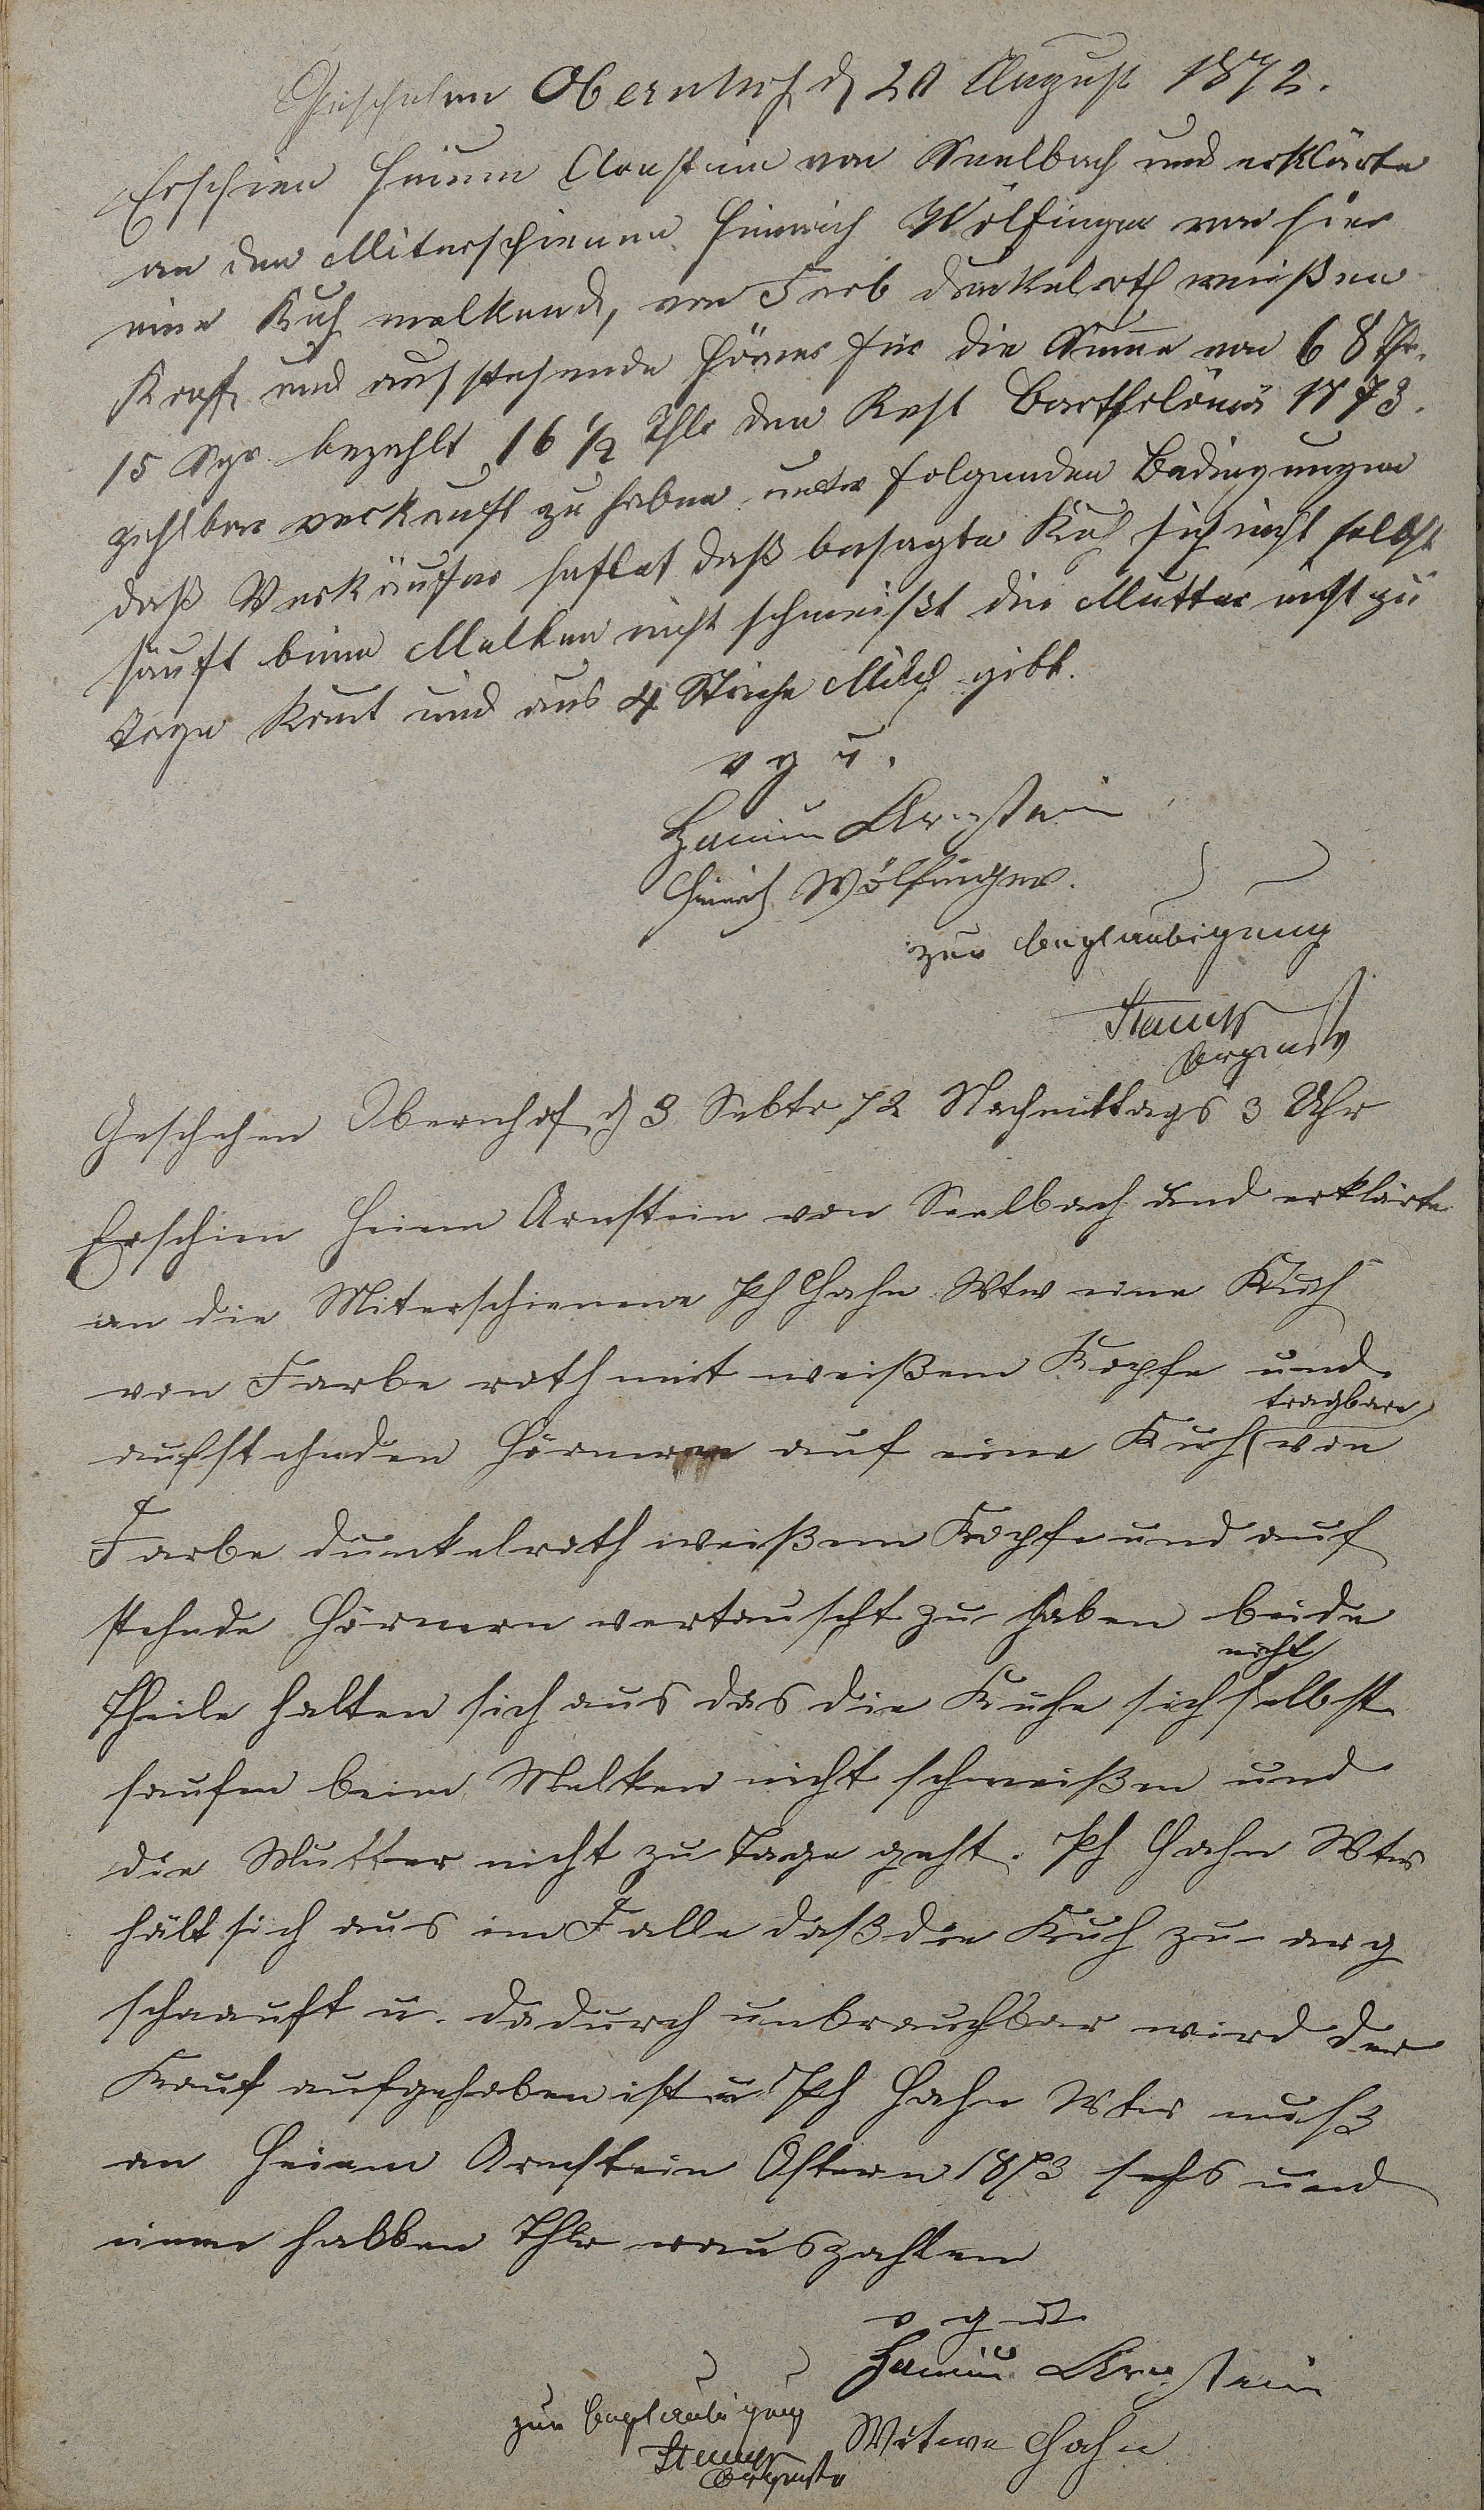 Geschehen Obernhof d 20 August 1872.
Erschien Heium Arnstein von Seelbach und erklärte
an den Miterschienene Heinrich Wölfinger von hier
eine Kuh melkend, von Farb dunkelroth weißen
Kopf und aufstehende Hörner für die Summe von 68 Thr.
15 Sgr. bezahlt 16 ½ Thlr den Rest Bartholömä 1873.
zahlbar verkauft zu haben unter folgenden Bedingungen
daß Verkäufer haftet daß besagte Kuh sich nicht selbst
säuft beim Melken nicht schmeißt die Mutter nicht zu
Tage komt und aus 4 Striche Milch gibt.
v g u.
Heium Arnstein
Heinrich Wölfinger.
zur Beglaubigung
Geschehen Obernhof d 3 Sebtr 72 Nachmittags 3 Uhr
Erschien Heium Arnstein von Seelbach und erklärte
an die Miterschienene Ph Hahn Wtw eine Kuh
von Farbe roth mit weißem Kopfe und
tragbare
aufstehnden Hörner auf eine Kuh von
Farbe dunkelroth weißem Kopfe und auf
stehnde Hörnern vertauscht zu haben beide
nicht
Theile halten sich aus das die Kuhe sich selbst
saufen beim Melken nicht schmeißen und
die Mutter nicht zu Tage geht. Ph Hahn Wtw
hält sich aus im Falle daß die Kuh zu arg
schnauft u. dadurch unbrauchbar wird der
Kauf aufgehoben ist u Ph Hahn Wtw muß
an Heium Arnstein Ostern 1873 sechs und
einen halben Thlr rauszahlen
v g u
Heium Arnstein
zur Beglaubigung
Witwe Hahn